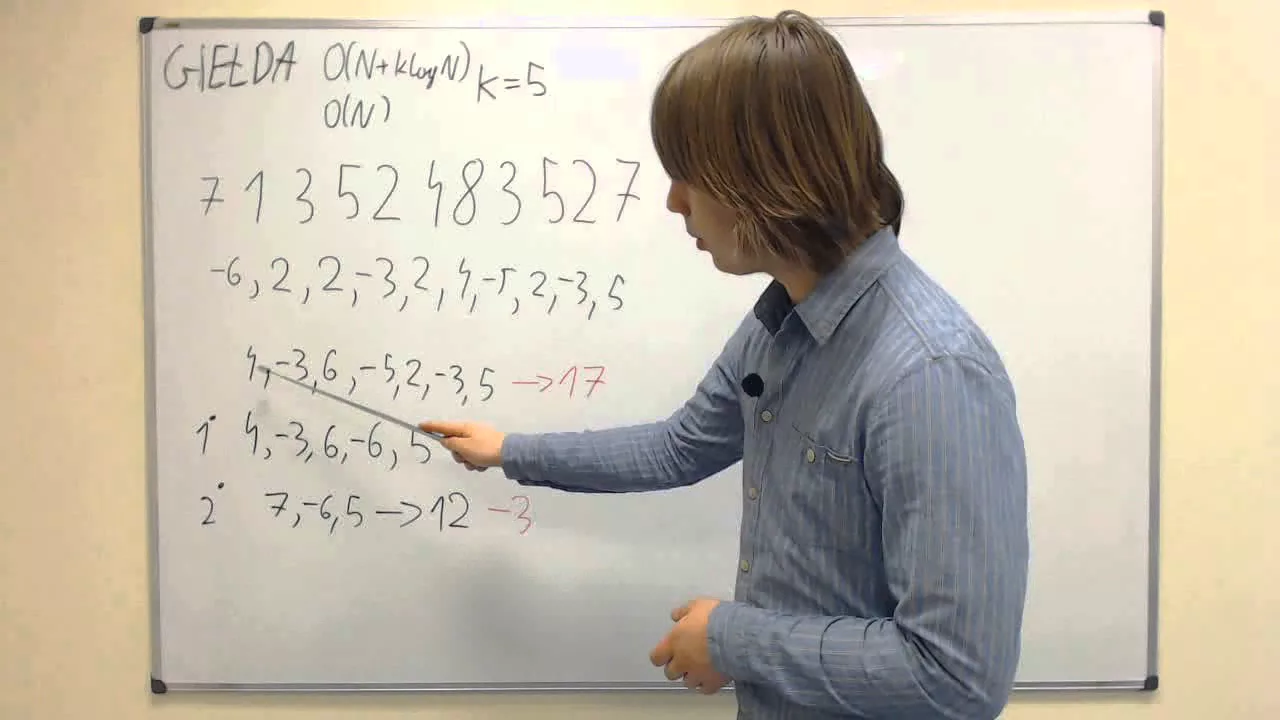 GIEŁDA O(N+klogN) k=5
O(N)
7 1 3 5 2 4 8 3 5 2 7
-6, 2, 2, -3, 2, 4, -5, 2, -3, 5
4, -3, 6, -5, 2, -3, 5 → 17
1° 4, -3, 6, -6, 5
2° 7, -6, 5 → 12 -3